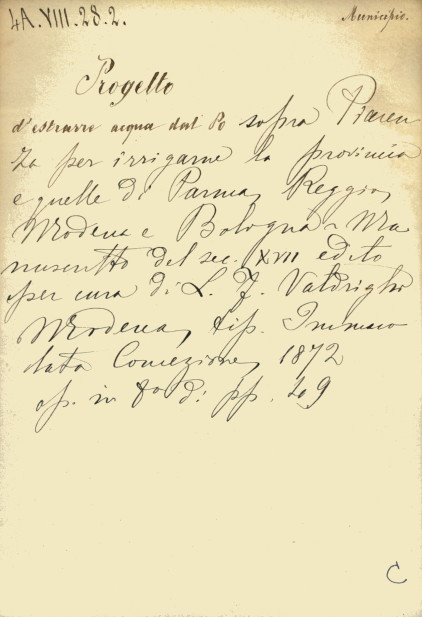 4A.VIII.28.2.
Municipio.
Progetto
d'estrarre acqua dal Po sopra Piacen
za per irrigarne la provincia
e quelle di Parma, Reggio,
Modena e Bologna - Ma
nuscritto del sec. XVII edito
per cura di L. F. Valdrighi
Modena, tip. Immaco
lata Concezione, 1872
op. in 8o di pp. 209
C